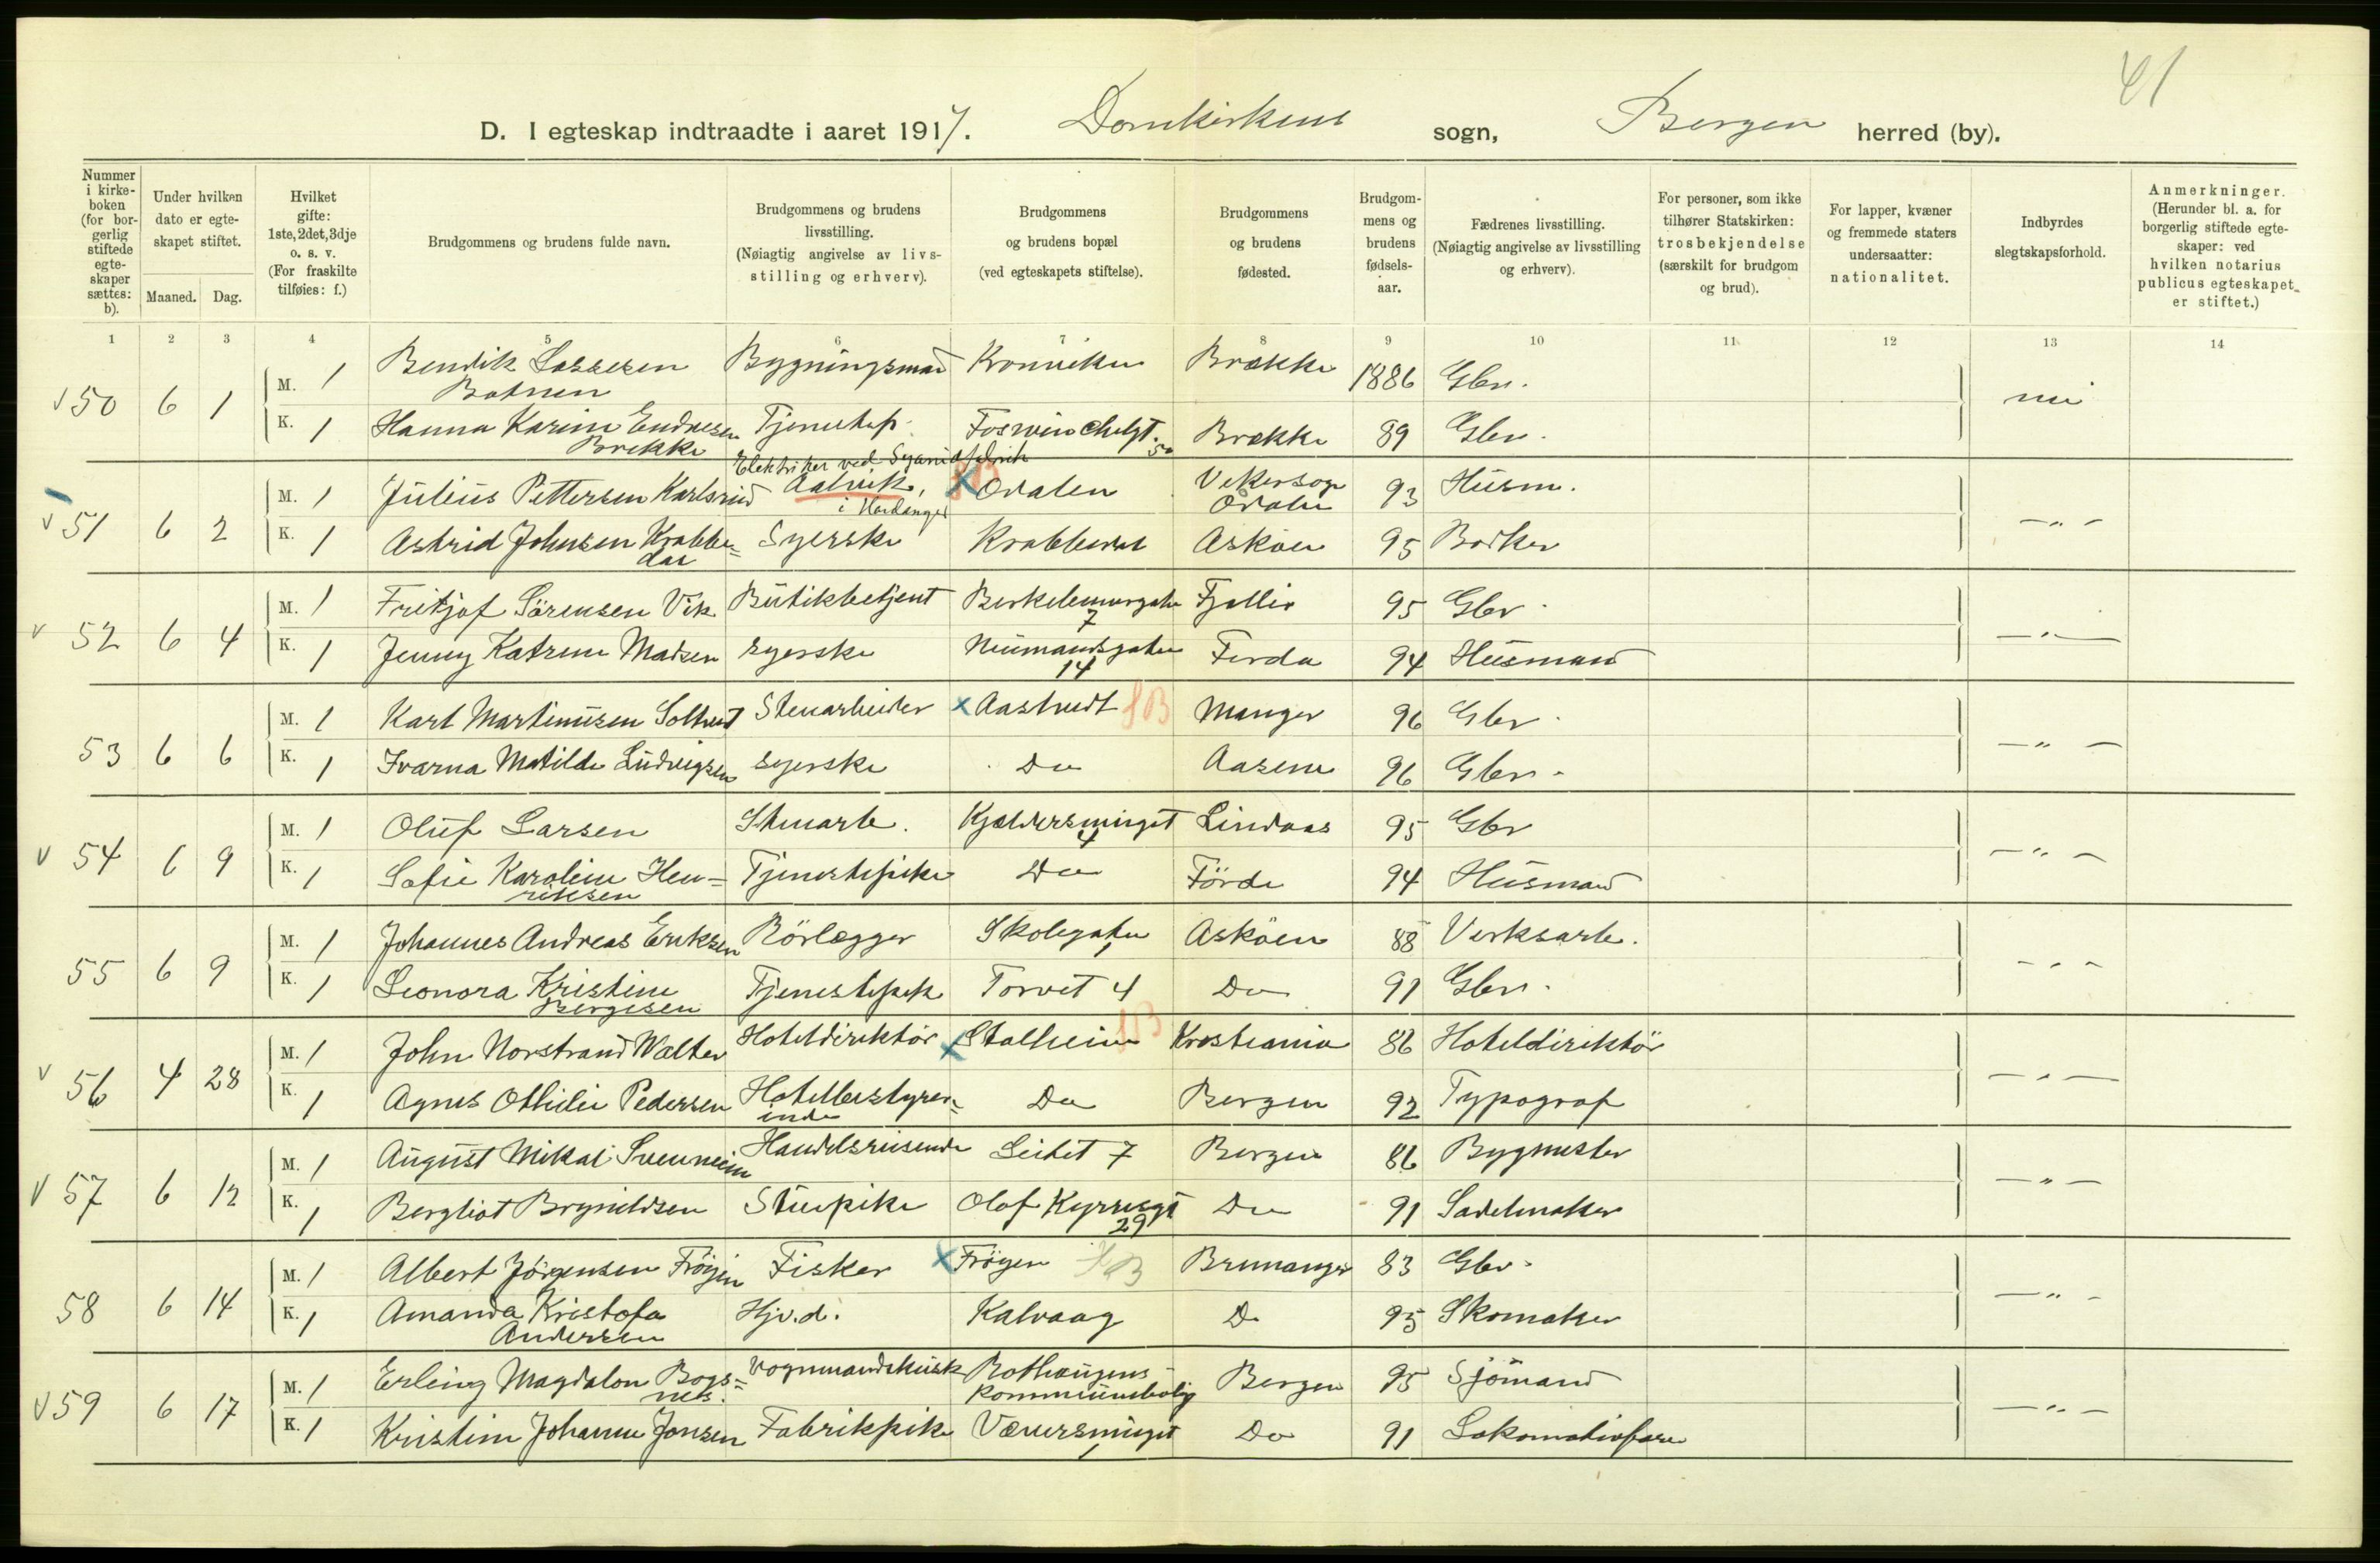 41
D. I egteskap indtraadte i aaret 1917. Domkirkens sogn, Bergen herred (by).
Nummer i kirke-boken (for bor-gerlig stiftede egte-skaper sættes: b).
Under hvilken dato er egte-skapet stiftet.
Maaned. Dag.
Hvilket gifte: 1ste, 2det, 3dje o. s. v. (For fraskilte tilføies: f.)
Brudgommens og brudens fulde navn.
Brudgommens og brudens livsstilling. (Nøiagtig angivelse av livs-stilling og erhverv).
Brudgommens og brudens bopæl (ved egteskapets stiftelse).
Brudgommens og brudens fødested.
Brudgom-mens og brudens fødsels-aar.
Fædrenes livsstilling. (Nøiagtig angivelse av livsstilling og erhverv).
For personer, som ikke tilhører Statskirken: trosbekjendelse (særskilt for brudgom og brud).
For lapper, kvæner og fremmede staters undersaatter: nationalitet.
Indbyrdes slegtskapsforhold.
Anmerkninger. (Herunder bl. a. for borgerlig stiftede egte-skaper: ved hvilken notarius publicus egteskapet er stiftet.)
1 2 3 4 5 6 7 8 9 10 11 12 13 14
v 50 6 1 M. 1 Bendik Lassesen Botnen Bygningsmand Brække 1886 Gbr. nei
K. 1 Hanna Karine Endresen Brekke Tjenestep. 50 Brække 89 Gbr.
v 51 6 2 M. 1 Julius Pettersen Karlsrud Elektriker ved Aalvik, i Hardanger x Odalen Odalen 93 Husm. — " —
K. 1 Astrid Johnsen Krabbe=dal Syerske Krabbedal Askøen 95 Bødker
v 52 6 4 M. 1 Fritjof Sörensen Vik Butikbetjent 7 95 Gbr. — " —
K. 1 Jenny Katrine Madsen syerske Neumandsgaten 14 Førde 94 Husmand
53 6 6 M. 1 Karl Martinusen Soltvedt Stenarbeider x Aastvedt SB Manger 96 Gbr. — " —
K. 1 Ivarna Matilde Ludvigsen syerske Do Aasene 96 Gbr.
v 54 6 9 M. 1 Oluf Larsen Stenarb. Kjeldersmuget 4 Lindaas 95 Gbr — " —
K. 1 Sofie Karoline Hen=riksen Tjenestepike Do Förde 94 Husmand
55 6 9 M. 1 Johannes Andreas Eriksen Rörlægger Skolegaten 1 Asköen 88 Verksarb. — " —
K. 1 Leonora Kristine Børgesen Tjenestepik Torvet 4 Do 91 Gbr.
v 56 4 28 M. 1 John Norstrand Walter Hoteldirektör x Stalheim SB Kristiania 86 Hoteldirektör — " —
K. 1 Agnes Othilie Pedersen Hotelbestyrer=inde Do Bergen 92 Typograf
v 57 6 12 M. 1 August Mikal Svenneim Handelsreisende Leitet 7 Bergen 86 Bygmester — " —
K. 1 Bergliot Brynildsen Stuepike Olaf Kyrresgt 29 Do 91 Sadelmaker
58 6 14 M. 1 Albert Jörgensen Fröyen Fisker x Fröyen SB Bremanger 83 Gbr. — " —
K. 1 Amanda Kristofa Andersen Hjv.d. Kalvaag Do 95 Skomaker
v 59 6 17 M. 1 Erling Magdalon Bogs=nes. Vognmandskusk Rothaugens kommunebolig Bergen 95 Sjömand — " —
K. 1 Kristine Johanne Jonsen Fabrikpike Værersmuget 1 Do 91 Lokomotivförer